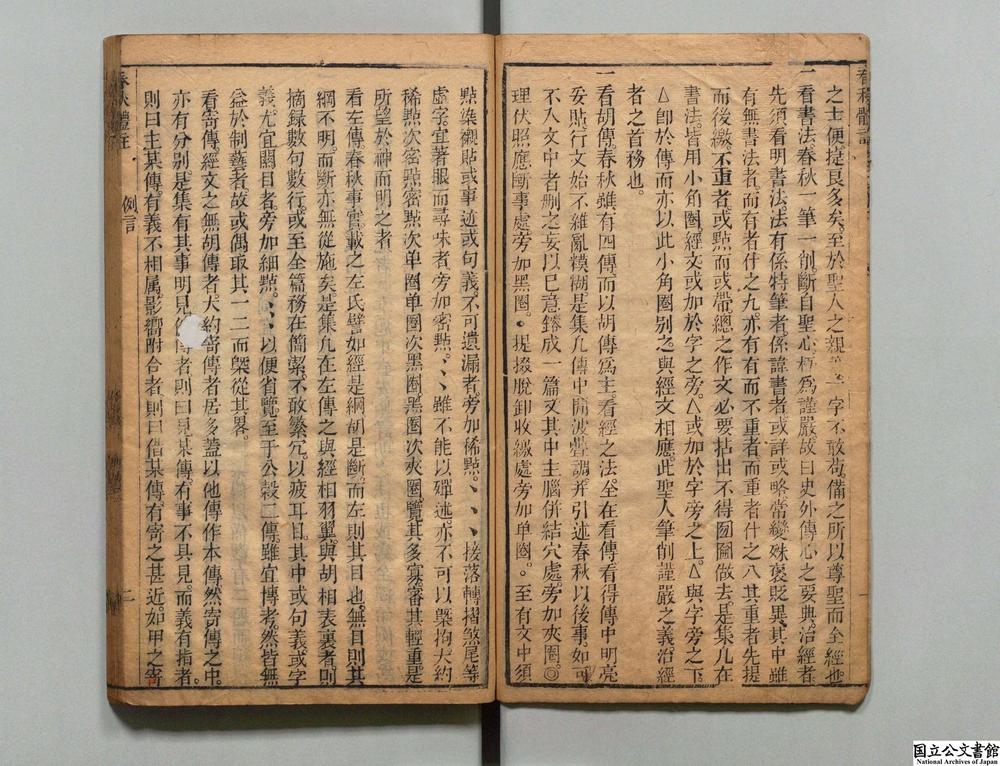 之士便捷良多矣至於聖人之之親一字不敢苟備之所以尊聖而全經也
一看書法春秋一筆一削斷自聖心極為謹嚴故曰史外傳心之要典治經者
先須看明書法法有係特筆者係諱書者或詳或略常變殊褒貶異其中雖
有無書法者而有者什之九亦有有而不重者而重者什之八其重者先提
而後繳不重者或點而或帶總之作文必要拈出不得囫圇做去是集凡在
書法皆用小角圈經文或加於字之旁△或加於字旁之上△與字旁之下
△卽於傳而亦以此小角圈別之與經文相應此聖人筆削謹嚴之義治經
者之首務也
一看胡傳春秋雖有四傳而以胡傳爲主看經之法全在看傳看得傳中明亮
妥貼行文始不雜亂糢糊是集凡傳中閒波疊調并引述春秋以後事如可
不入文中者刪之妄以己意鎔成一篇又其中主腦併結穴處旁加夾圈◎
理伏照應斷事處旁加黑圈●提掇脫卸收繳處旁加单圈○至有文中須
點染襯貼或事迹或句義不可遺漏者旁加稀點、、、接落轉摺煞尾等
虛字宜著眼而尋味者旁加密點、、、雖不能以殫述亦不可以槩拘大約
稀點次密點密點次单圈单圈次黑圈黑圈次夾圈覽其多寡審其輕重是
所望於神而明之者
看左傳春秋事實載之左氏譬如經是綱胡是斷而左則其目也無目則其
綱不明而斷亦無從施矣是集凡在左傳之與經相羽翼與胡相表裏者則
摘錄數句數行或至全篇務在簡潔不敢繁冗以疲耳目其中或句義或字
義尤宜關目者旁加細點、、、以便省覽至于公穀二傳雖宜博考然皆無
益於制藝者故或偶取其一二而槩從其畧
看寄傳經文之無胡傳者大約寄傳者居多蓋以他傳作本傳然寄傳之中
亦有分別是集有其事明見傳者則曰見某傳有事不具見而義有指者
則曰主某傳有義不相属影嚮附合者則曰借某傳有寄之甚近如甲之寄
春秋體註
例言
二
国立公文書館
National Archives of Japan